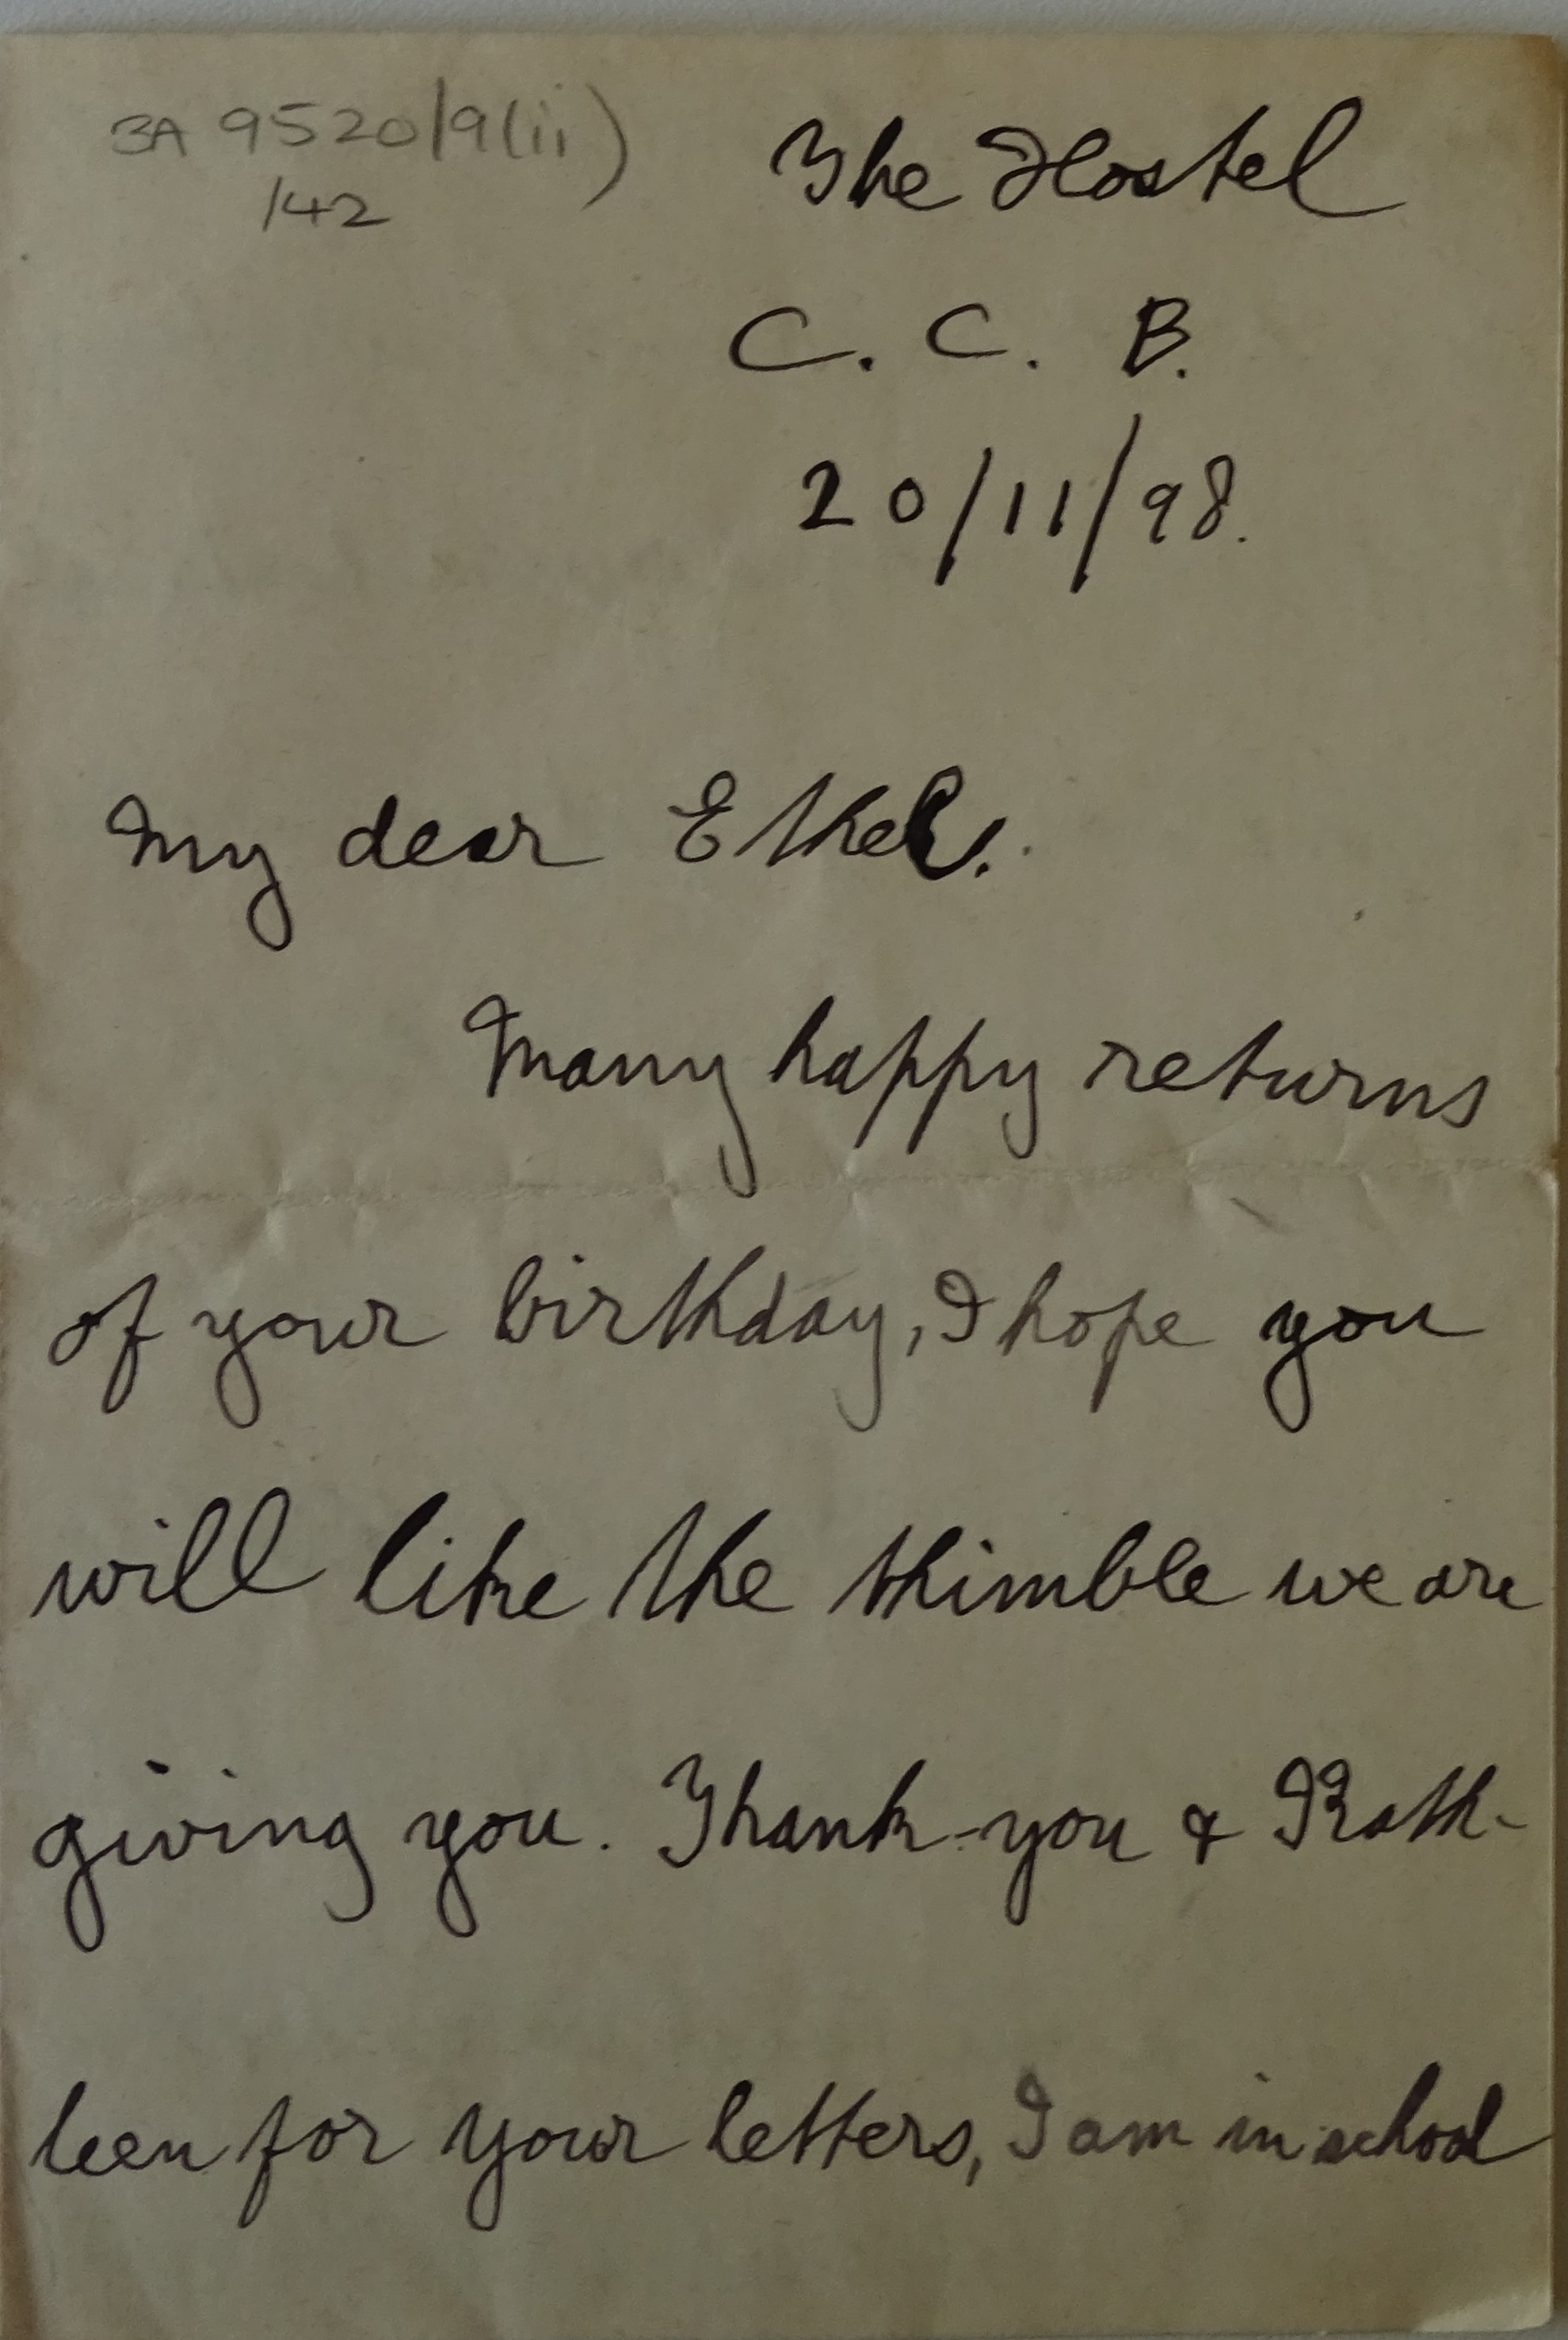 BA 9520/9(ii)
/42
The Hostel
C. C. B.
20/11/98.
My dear Ethel.
Many happy returns
of your birthday, I hope you
will like the thimble we are
giving you. Thank-you & Kath-
leen for your letters, I am in school